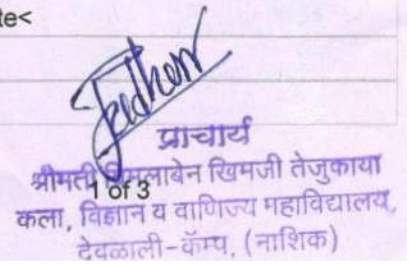 te<
प्राचार्य
श्रीमती विमलाबेन खिमजी तेजुकाया
1 of 3
कला, विज्ञान व वाणिज्य महाविद्यालय,
देवळाली-कॅम्प, (नाशिक)